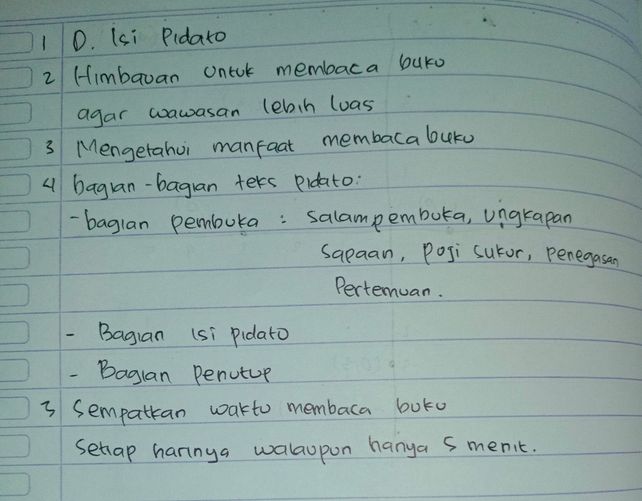 1 D. Isi Pidato
2 Himbauan untuk membaca buku
agar wawasan lebih luas
3 Mengetahui manfaat membaca buku
4 bagian-bagian teks pidato:
- bagian pembuka : salam pembuka, ungkapan
sapaan, poji sukur, penegasan
Pertemuan.
- Bagian isi pidato
- Bagian Penutup
3 Sempatkan waktu membaca buku
setiap harinya walaupun hanya 5 menit.